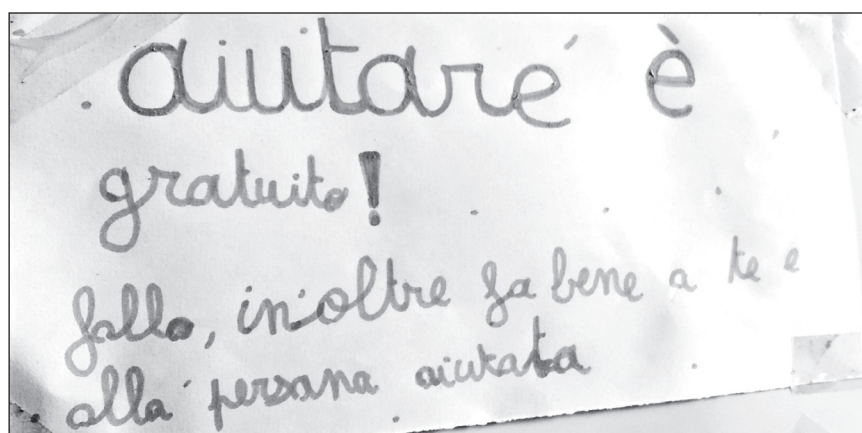 aiutare è
gratuito!
fallo, inoltre fa bene a te e
alla persona aiutata